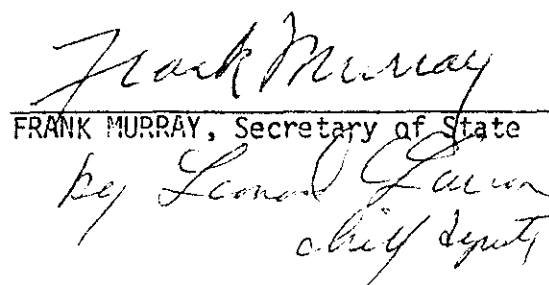 Frank Murray
FRANK MURRAY, Secretary of State
by Leonard Larson
chief deputy